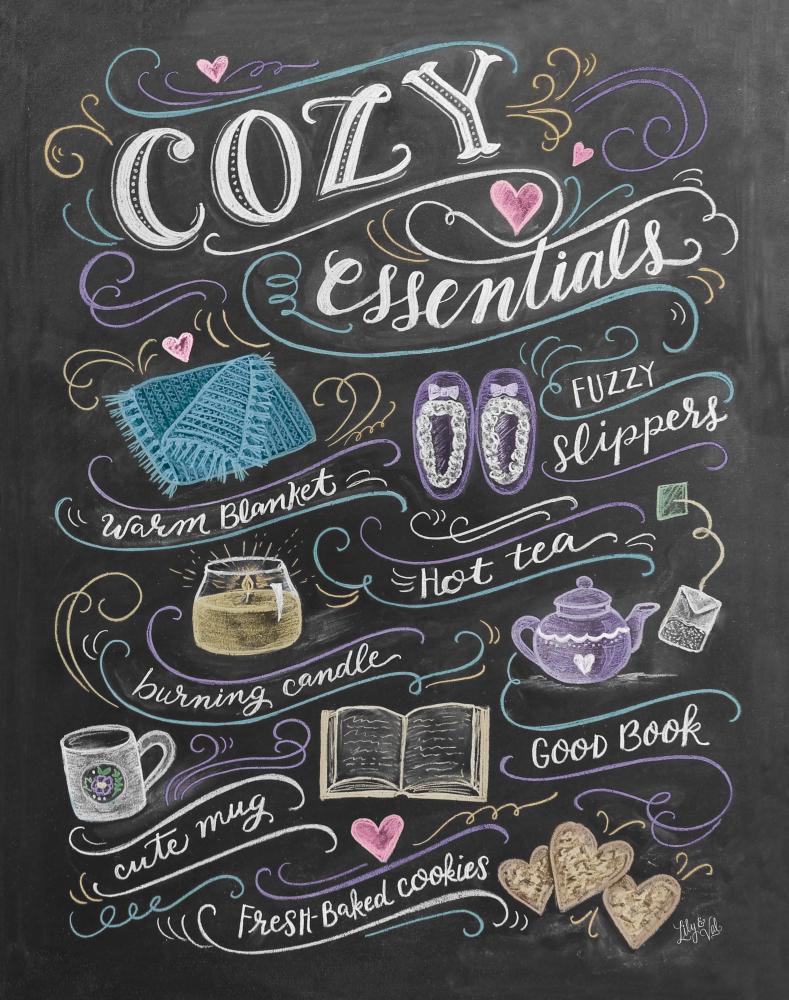 COZY
essentials
FUZZY
slippers
Warm Blanket
Hot tea
burning candle
GOOD BOOK
cute mug
FRESH-Baked cookies
Lily & Val